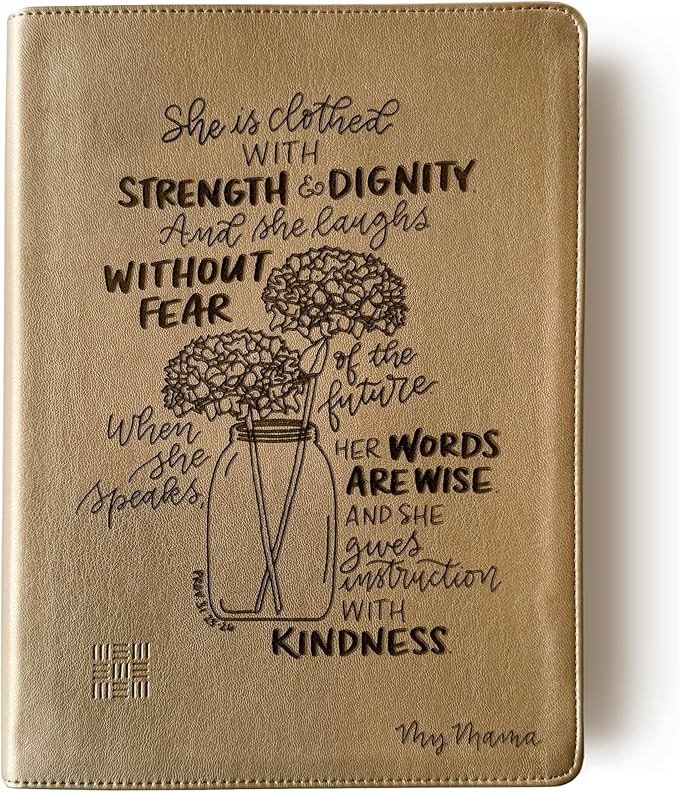 She is clothed
WITH
STRENGTH & DIGNITY.
And she laughs
WITHOUT
FEAR
of the
future
When
she
speaks,
HER WORDS
ARE WISE.
AND SHE
gives
instruction
WITH
KINDNESS.
PROV. 31:25-26
My Mama